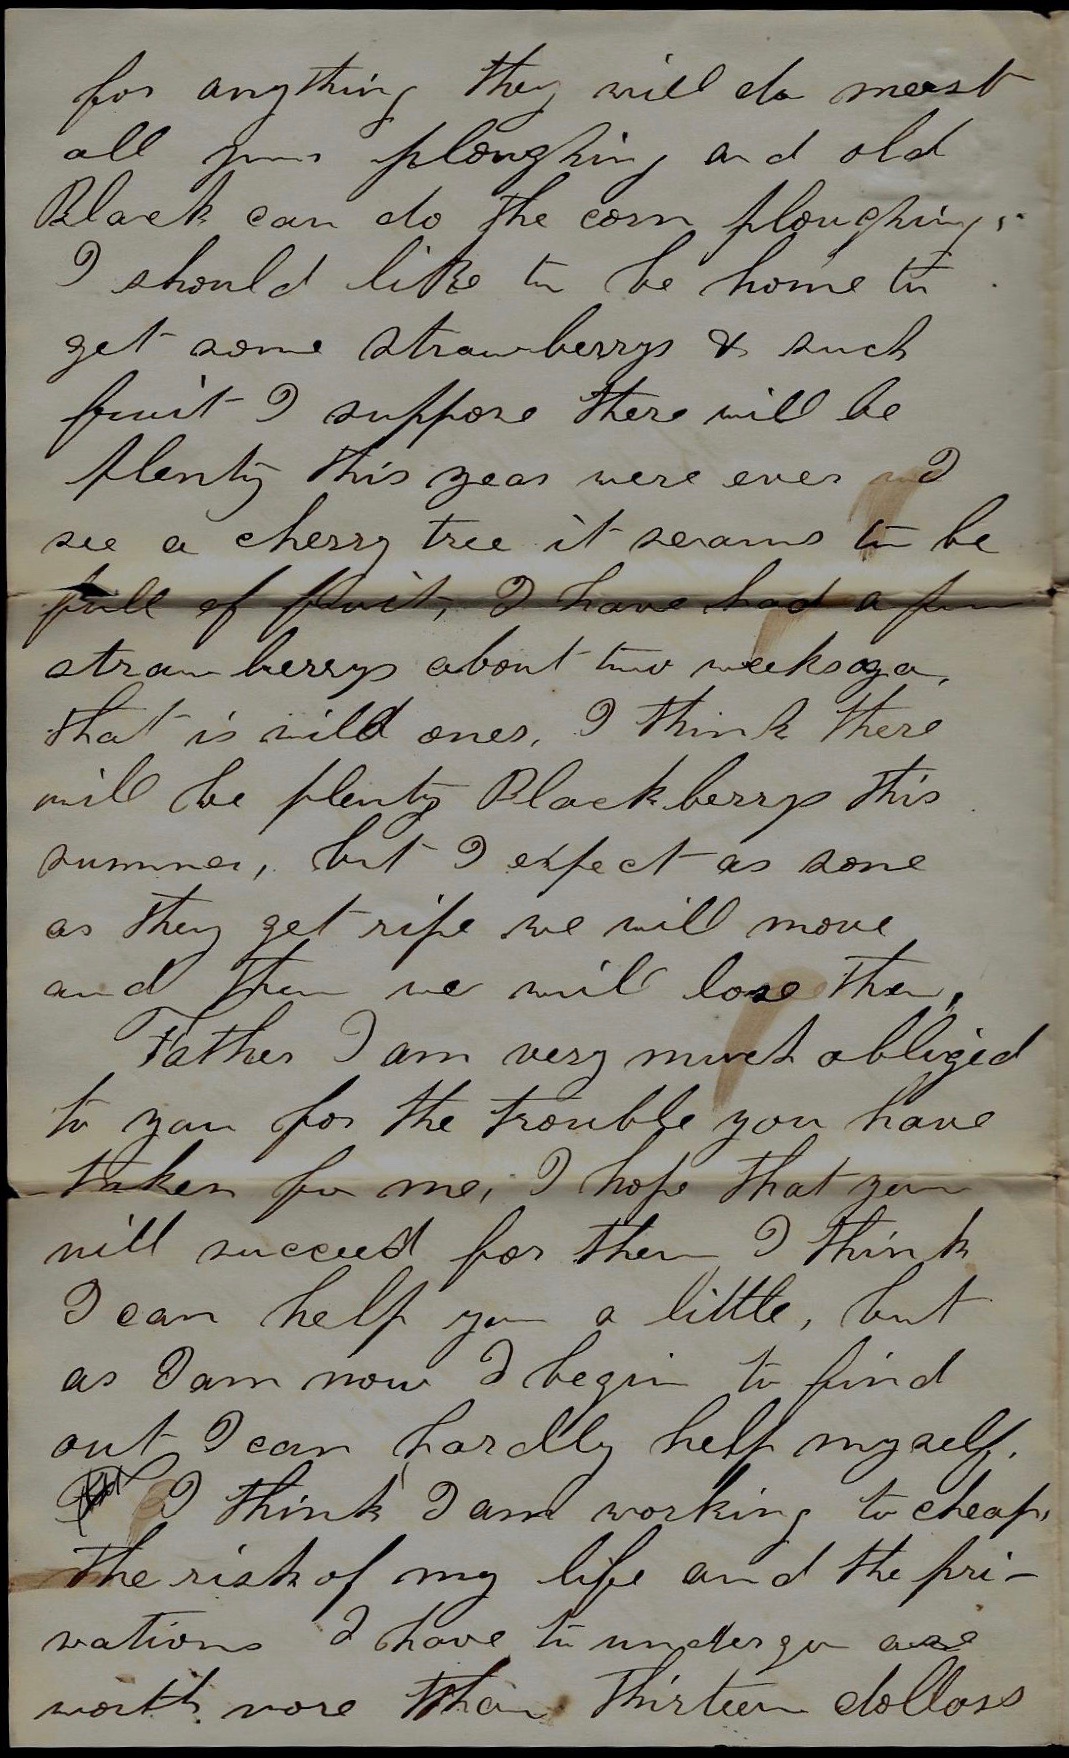 for anything they will do most
all your ploughing and old
Black can do the corn ploughing.
I should like to be home to
get some strawberrys & such
fruit I suppose there will be
plenty this year were ever I
see a cherry tree it seams to be
full of fruit, I have had a few
strawberrys about two weeks ago,
that is wild ones, I think there
will be plenty Blackberrys this
summer, but I expect as sone
as they get ripe we will move
and then we will lose them,
Father I am very much obliged
to you for the trouble you have
taken for me, I hope that you
will succeed for then I think
I can help you a little, but
as I am now I begin to find
out I can hardly help myself.
I think I am working to cheap,
the risk of my life and the pri-
vations I have to undergo are
worth more than thirteen dollars